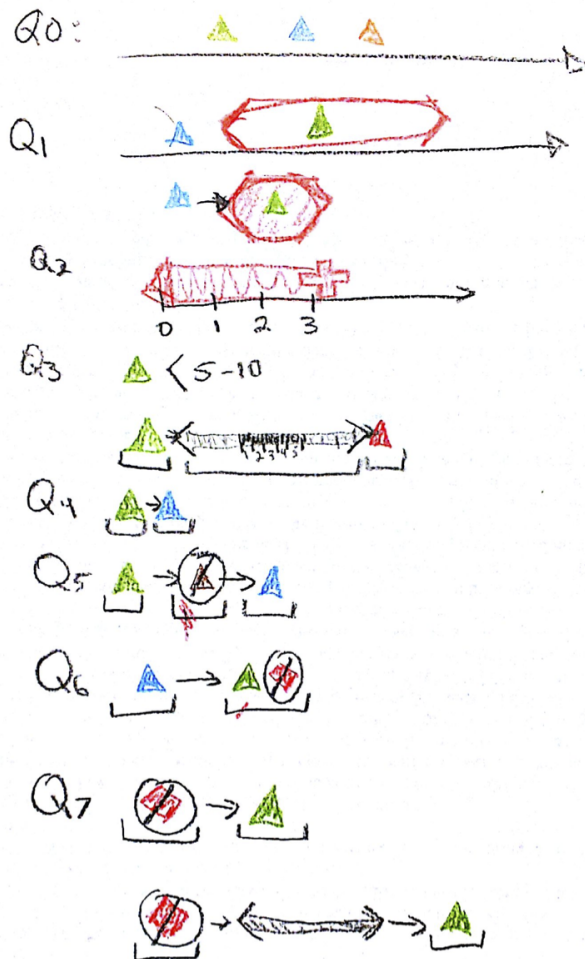 Q0:
Q1
Q2
0 1 2 3
Q3 < 5-10
1 2 3 4 5
Q4
Q5
Q6
Q7